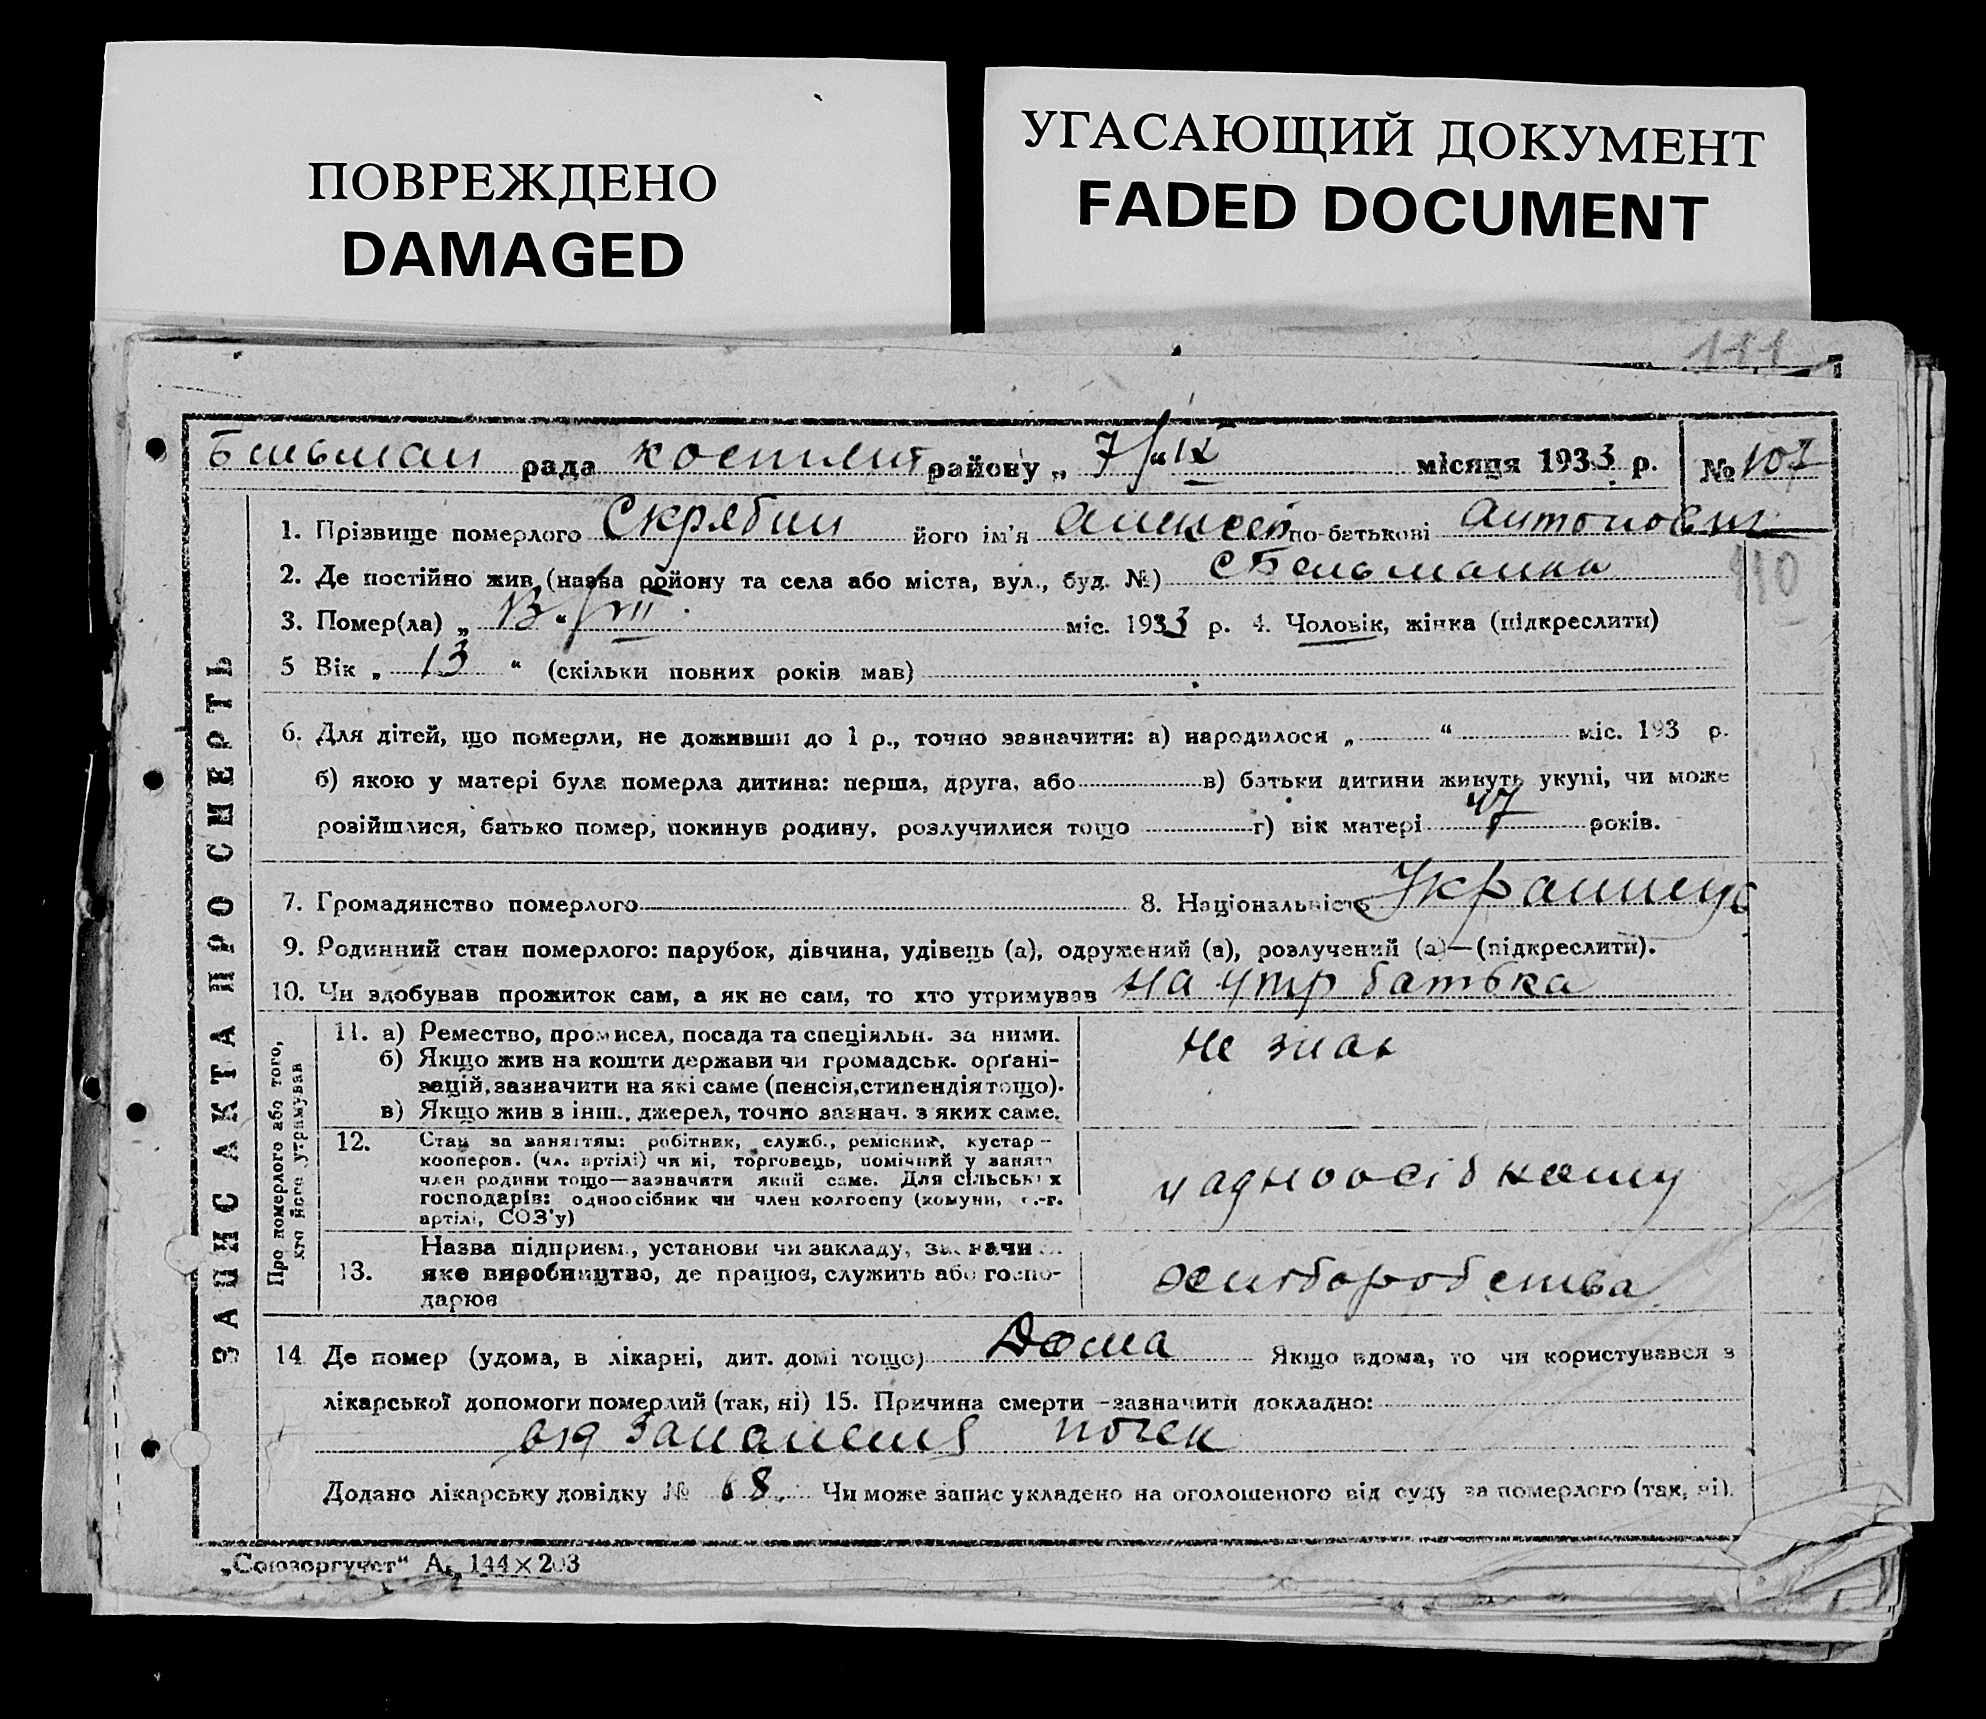 ПОВРЕЖДЕНО
DAMAGED
УГАСАЮЩИЙ ДОКУМЕНТ
FADED DOCUMENT
111
Бильман рада района „ 7/IX “ місяця 1933 р. № 107
ЗАПИСКА ПРО СМЕРТЬ
1. Прізвище померлого Скрябин його ім'я Алексей по-батькові Антонович
110
2. Де постійно жив (назва району та села або міста, вул., буд. №) с Бельманка
3. Помер(ла) „ 13 “ / VIII міс. 1933 р. 4. Чоловік, жінка (підкреслити)
5 Вік „ 13 “ (скільки повних років мав)
6. Для дітей, що померли, не доживши до 1 р., точно зазначити: а) народилося „ “ міс. 193 р.
б) якою у матері була померла дитина: перша, друга, або в) батьки дитини живуть укупі, чи може
розійшлися, батько помер, покинув родину, розлучилися тощо г) вік матері 47 років.
7. Громадянство померлого 8. Національність Украинець
9. Родинний стан померлого: парубок, дівчина, удівець (а), одружений (а), розлучений (а)—(підкреслити).
10. Чи здобував прожиток сам, а як не сам, то хто утримував На утр батька
Про померлого або того, хто його утримував
11. а) Ремество, промисел, посада та спеціяльн. за ними.
б) Якщо жив на кошти держави чи громадськ. органі-
зацій, зазначити на які саме (пенсія, стипендія тощо).
в) Якщо жив з інш., джерел, точно зазнач. з яких саме.
Не знач
12. Стан за заняттям: робітник, служб., ремісник, кустар-
кооперов. (чл. артілі) чи ні, торговець, помічний у занятт
член родини тощо—зазначити який саме. Для сільських
господарів: одноосібник чи член колгоспу (комуни, с.-г.
артілі, СОЗ'у)
13. Назва підприєм., установи чи закладу, зазначи
яке виробництво, де працює, служить або госпо-
дарює
14 Де помер (удома, в лікарні, дит. домі тощо) Дома Якщо вдома, то чи користувався з
лікарської допомоги померлий (так, ні) 15. Причина смерти - зазначити докладно:
від запаления почек
Додано лікарську довідку № 68. Чи може запис укладено на оголошеного від суду за померлого (так, ні).
„Союзоргучет“ А₅ 144×203